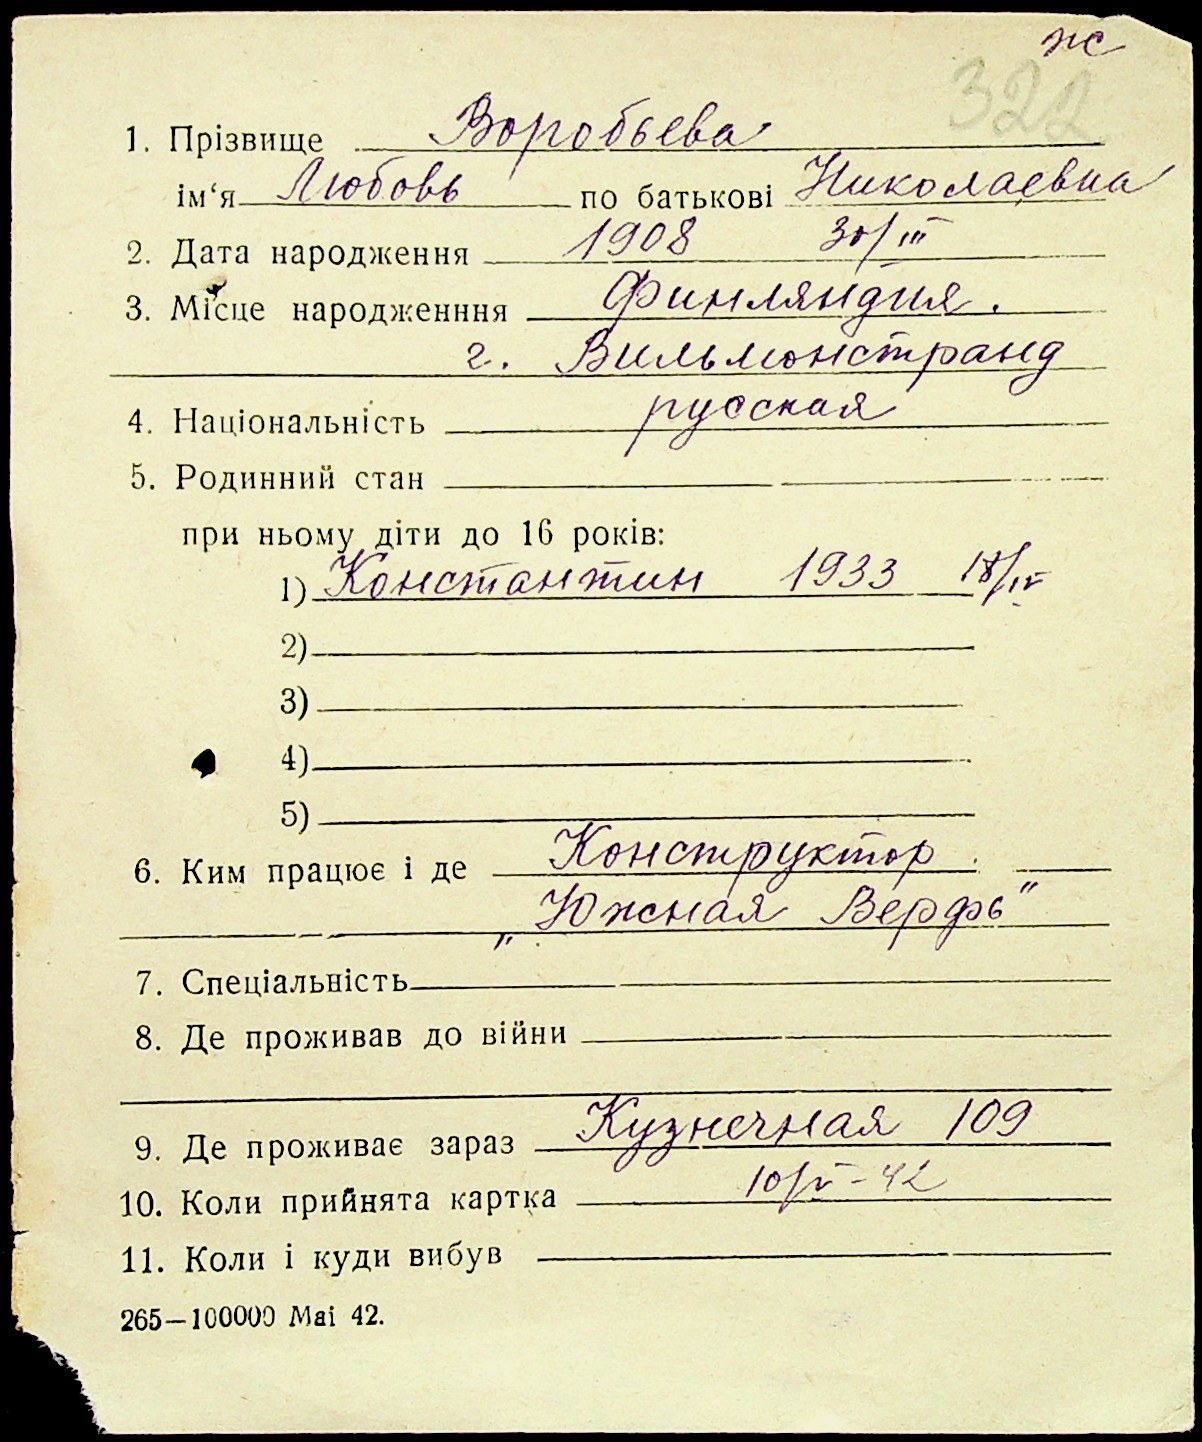 ж
322
1. Прізвище Воробьева
ім‘я Любовь по батькові Николаевна
2. Дата народження 1908 30/III
3. Місце народженння Финляндия.
г. Вильмонстранд
4. Національність русская
5. Родинний стан
при ньому діти до 16 років:
1) Константин 1933 18/IV
2)
3)
4)
5)
6. Ким працює і де Конструктор
„Южная Верфь"
7. Спеціальність
8. Де проживав до війни
9. Де проживає зараз Кузнечная 109
10. Коли прийнята картка 10/V-42
11. Коли і куди вибув
265—100000 Mai 42.